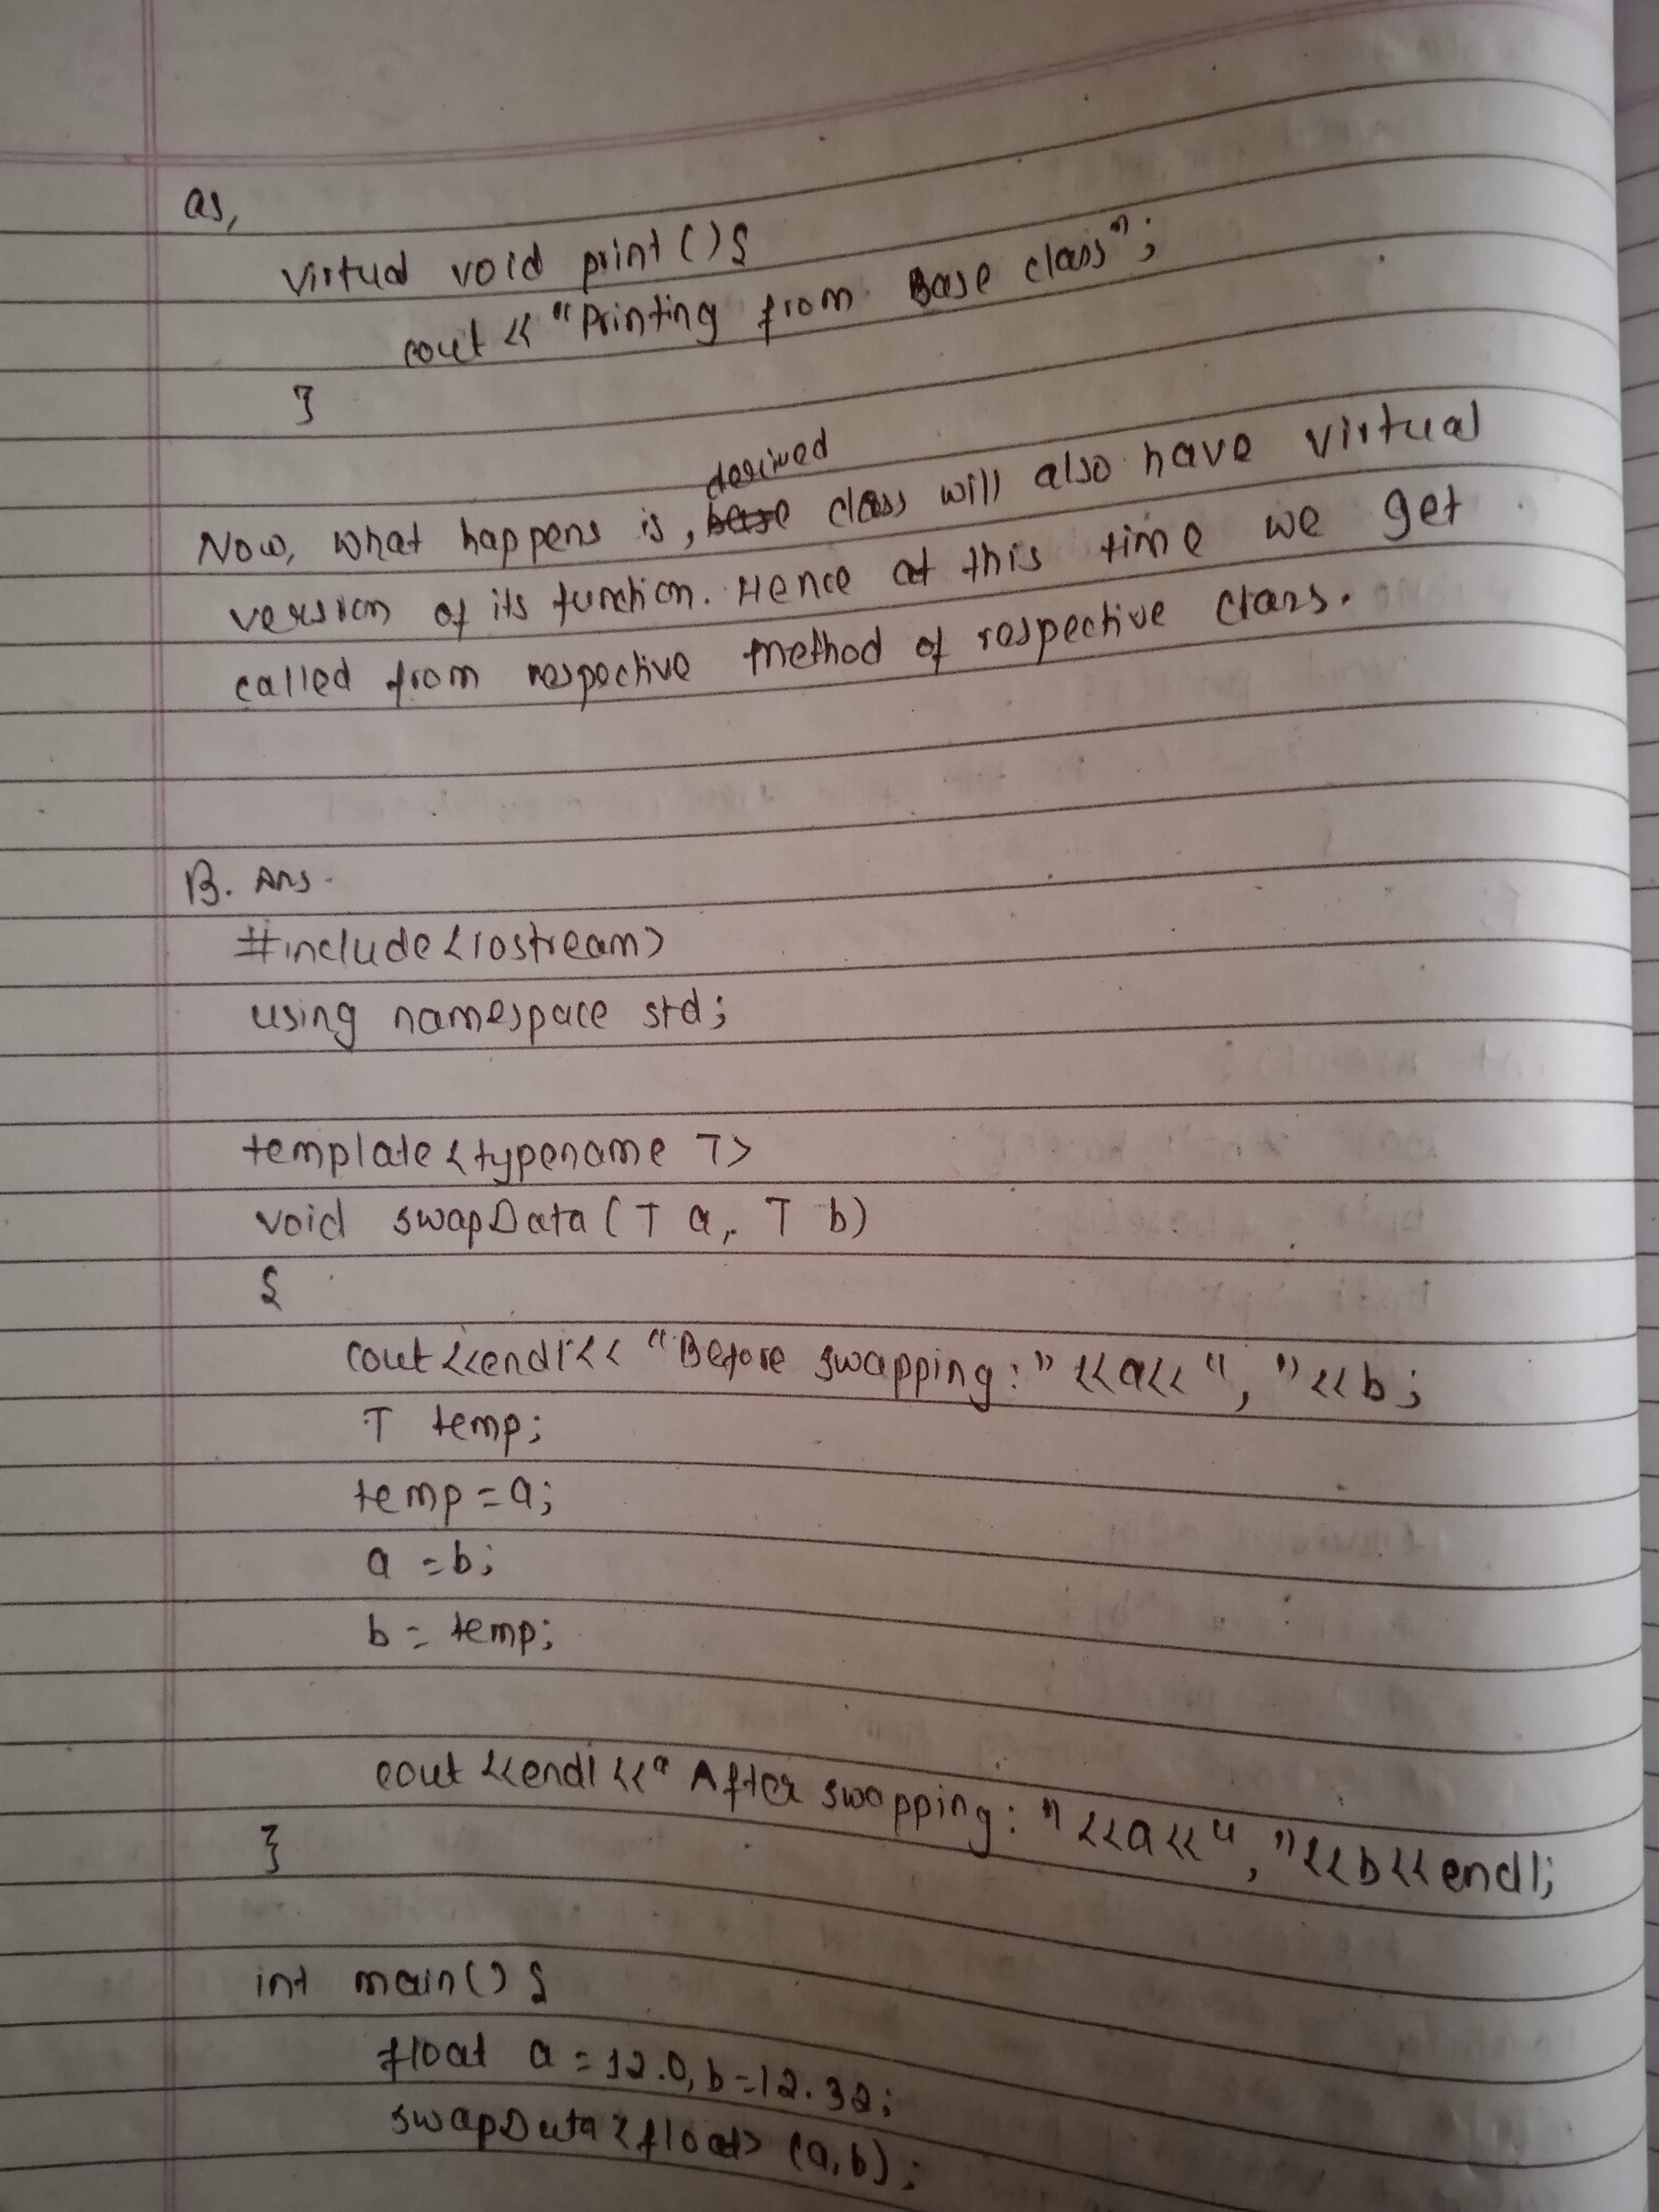 as,
virtual void print(){
cout << "Printing from Base class";
}
derived
Now, what happens is, base class will also have virtual
version of its function. Hence at this time we get
called from respective method of respective class.
B. Ans.
#include<iostream>
using namespace std;
template<typename T>
void swapData(T a, T b)
{
cout<<endl<< "Before swapping:"<<a<<","<<b;
T temp;
temp=a;
a=b;
b=temp;
cout<<endl<<"After swapping:"<<a<<","<<b<<endl;
}
int main(){
float a=12.0,b=12.32;
swapData<float>(a,b);